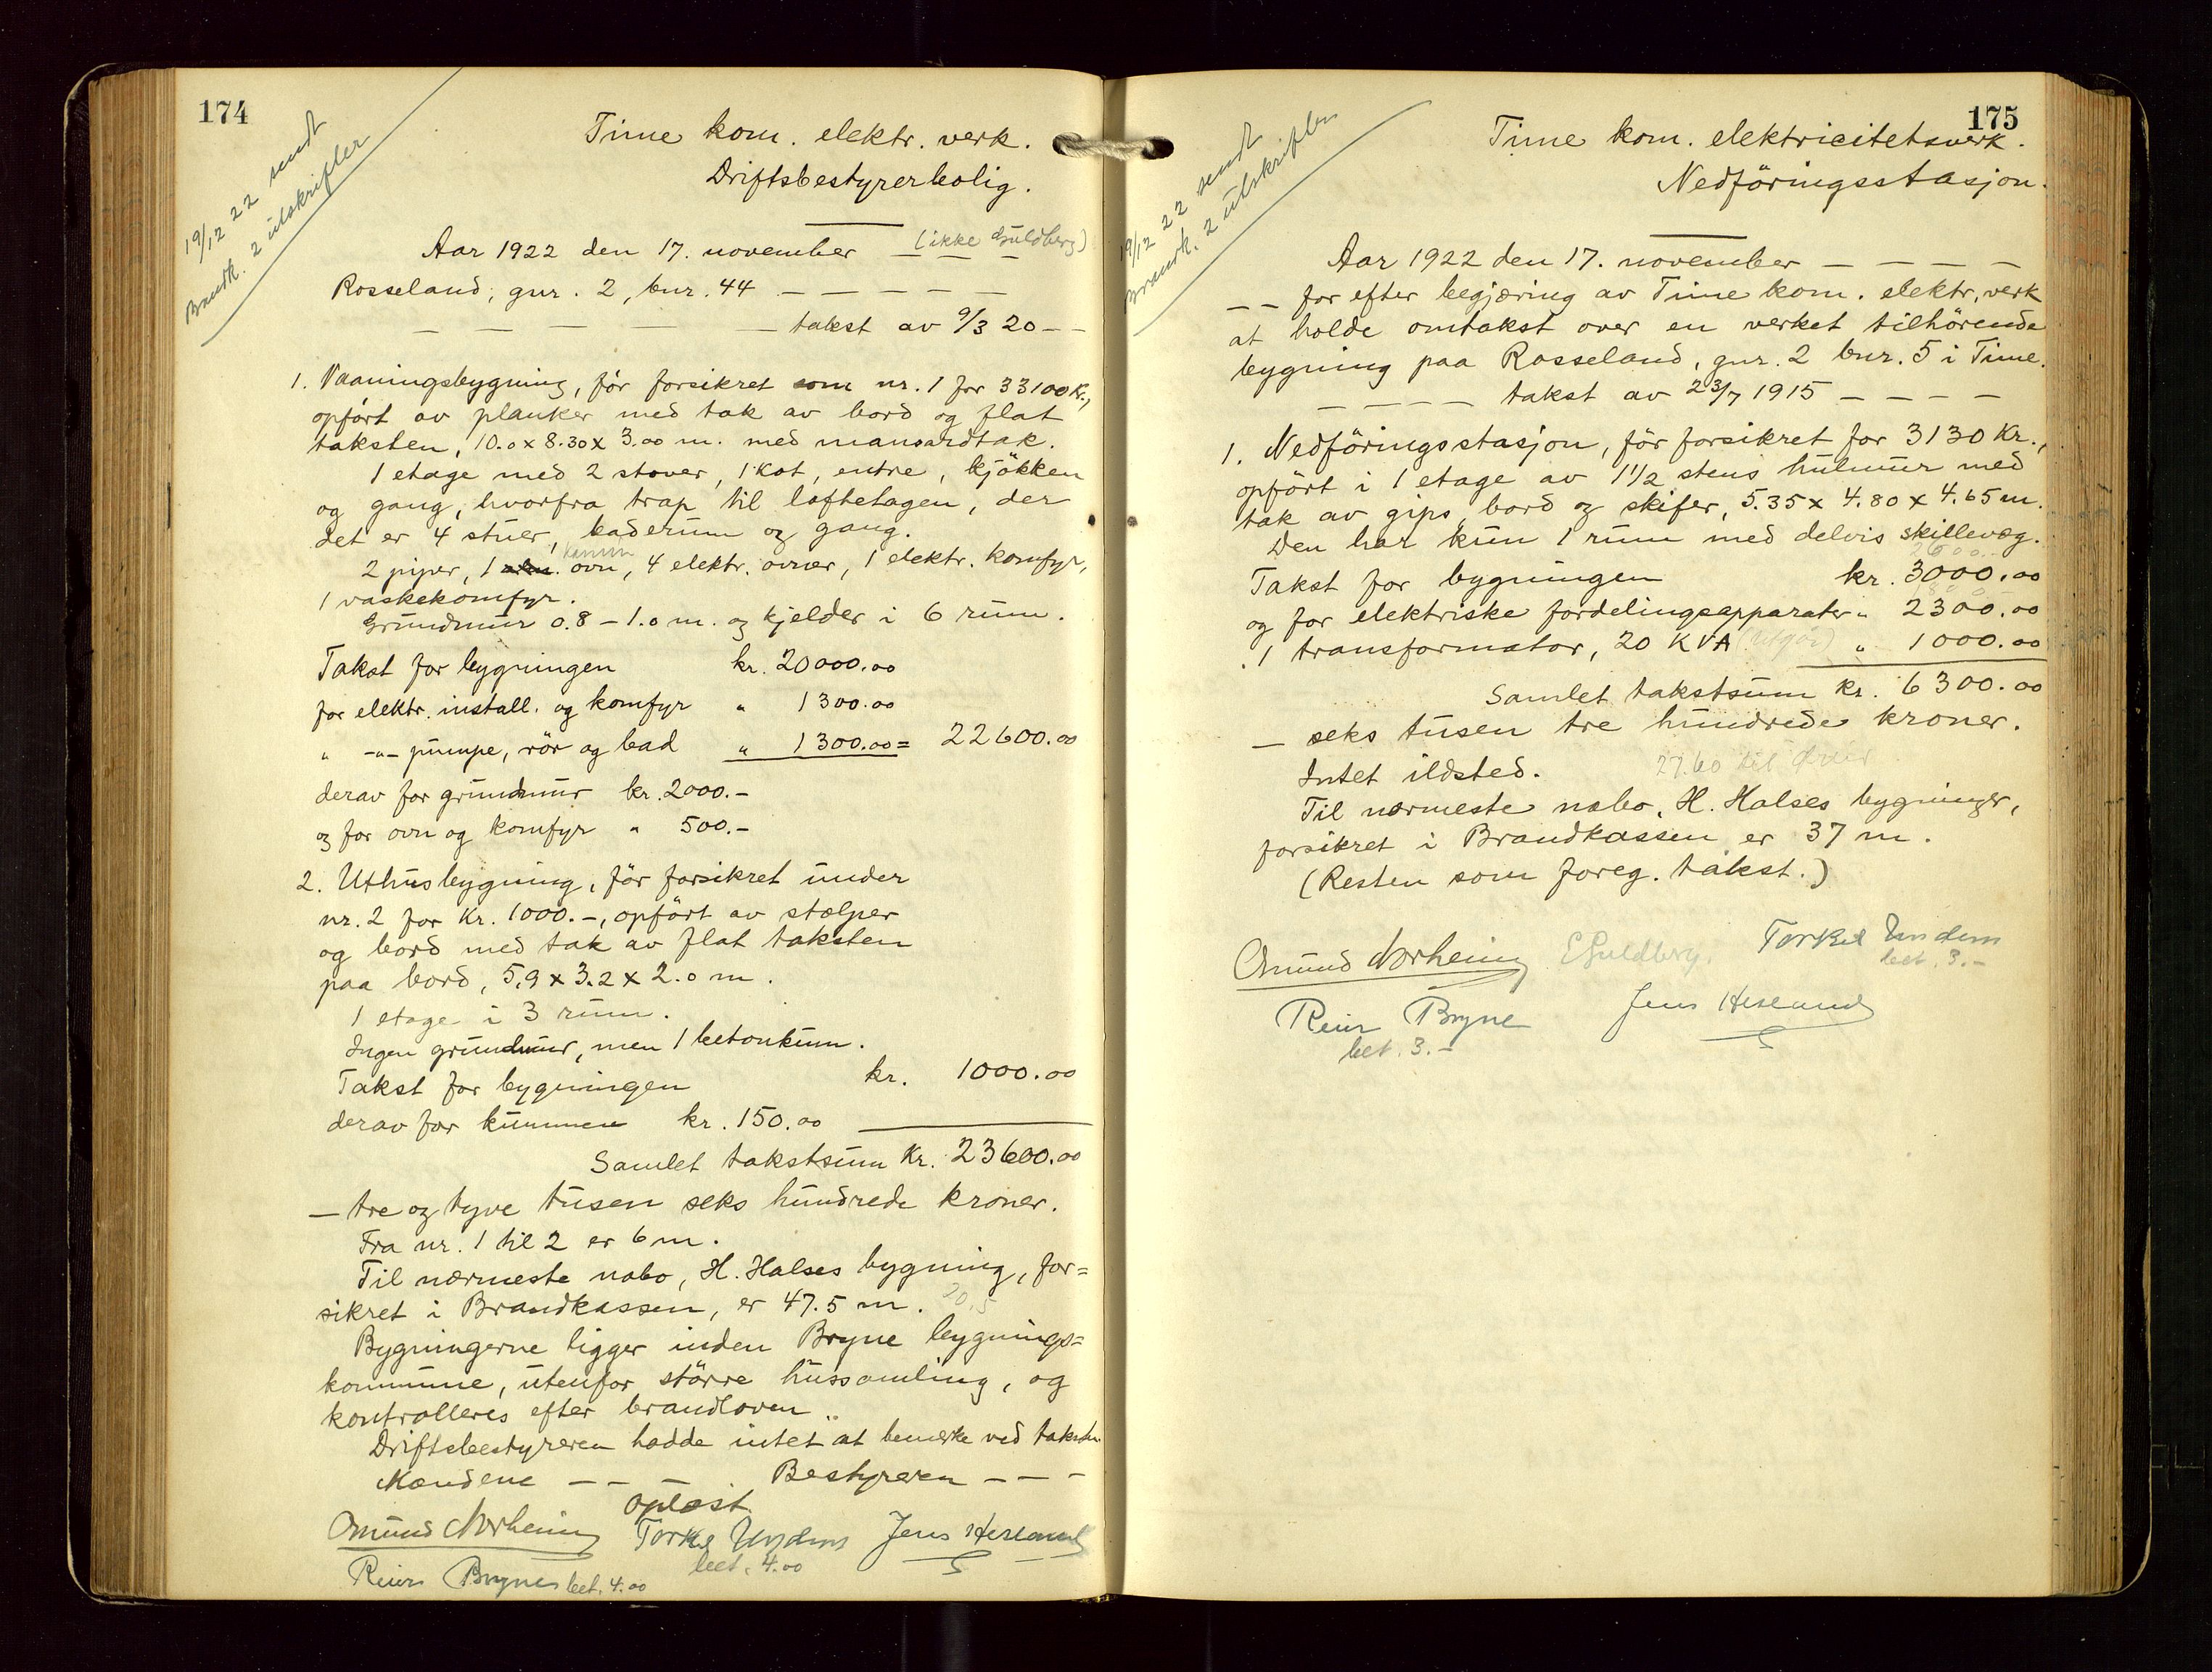 174
19/12 22 sendt
Brandk. 2 utskrifter
Time kom. elektr. verk.
Driftsbestyrerbolig.
Aar 1922 den 17. november — — — (ikke Guldberg)
Rosseland, gnr. 2, bnr. 44 — — — — —
— — — — — takst av 9/3 20 — —
1. Vaaningsbygning, før forsikret som nr. 1 for 33100 Kr.,
opført av planker med tak av bord og flat
taksten, 10.0 x 8.30 x 3.00 m. med mansardtak.
1 etage med 2 stover, 1 kot, entre, kjökken
og gang, hvorfra trap til loftetagen, der
det er 4 stuer, baderum og gang.
2 piper, 1 kamin ovn, 4 elektr. ovner, 1 elektr. komfyr,
1 vaskekomfyr.
Grundmur 0.8 – 1.0 m. og kjelder i 6 rum.
Takst for bygningen kr. 20000.00
for elektr. install. og komfyr " 1300.00
" -"- pumpe, rör og bad " 1300.00 = 22600.00
derav for grundmur kr. 2000.–
og for ovn og komfyr " 500.–
2. Uthusbygning, för forsikret under
nr. 2 for Kr. 1000.–, opfört av stolper
og bord med tak av flat taksten
paa bord, 5.9 x 3.2 x 2.0 m.
1 etage i 3 rum.
Ingen grundmur, men 1 betonkum.
Takst for bygningen kr. 1000.00
derav for kummen kr. 150.00
Samlet takstsum Kr. 23600.00
— tre og tyve tusen seks hundrede kroner.
Fra nr. 1 til 2 er 6 m.
Til nærmeste nabo, H. Halses bygning, for=
sikret i Brandkassen, er 47.5 m. 20,5
Bygningerne ligger inden Bryne bygnings=
kommune, utenfor större hussamling, og
kontrolleres efter brandloven.
Driftsbestyreren hadde intet at bemerke ved taksten.
Mændene — — — Bestyreren — — —
Oplæst.
Omund Norheim Torkel Undem Jens Herland
bet. 4.00
Reier Bryne bet. 4.00
175
19/12 22 sendt
Brandk. 2 utskrifter
Time kom. elektricitetsverk.
Nedföringsstasjon.
Aar 1922 den 17. november — — — —
— — for efter begjæring av Time kom. elektr. verk
at holde omtakst over en verket tilhörende
bygning paa Rosseland, gnr. 2 bnr. 5 i Time.
— — — — takst av 23/7 1915 — — — —
1. Nedföringsstasjon, för forsikret for 3130 Kr.,
opfört i 1 etage av 1 1/2 stens hulmur med
tak av gips, bord og skifer, 5.35 x 4.80 x 4.65 m.
Den har kun 1 rum med delvis skillevæg.
Takst for bygningen kr. 3000.00
og for elektriske fordelingsapparater " 2300.00
. 1 transformator, 20 KVA (utgår) " 1000.00
Samlet takstsum kr. 6300.00
— seks tusen tre hundrede kroner.
Intet ildsted. 27.60 til
Til nærmeste nabo, H. Halses bygninger,
forsikret i Brandkassen er 37 m.
(Resten som foreg. takst.)
Omund Norheim E Guldberg. Torkel Undem
bet. 3.–
Reier Bryne Jens Herland
bet. 3.–